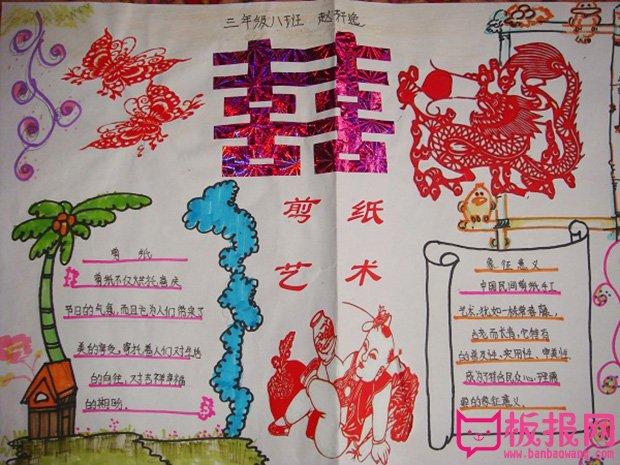 三年级八班 赵轩逸
囍
剪纸
艺术
剪纸
剪纸不仅烘托喜庆
节日的气氛,而且也为人们带来了
美的享受,寄托着人们对生活
的自信,对吉祥幸福
的期盼。
象征意义
中国民间剪纸手工
艺术,犹如一株常春藤,
古老而长青,它特有
的普及性,实用性,审美性
成为了符合民众心理需
要的象征意义。
板报网
www.banbaowang.com